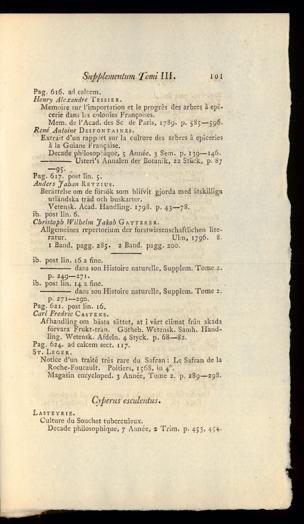 Supplementum Tomi III. 101
Pag. 616. ad calcem.
Henry Alexandre TESSIER.
Memoire sur l'importation et le progrès des arbres à epi-
cerie dans les colonies Françoises.
Mem. de l'Acad. des Sc de Paris, 1789. p. 585—596.
René Antoine DESFONTAINES.
Extrait d'un rapport sur la culture des arbres à epiceries
à la Guiane Française.
Decade philosophique, 5 Année, 3 Sem. p. 139—146.
——— Usteri's Annalen der Botanik, 22 Stück, p. 87
—95.
Pag. 617. post lin. 5.
Anders Jahan RETZIUS.
Berättelse om de försök som blifvit gjorda med åtskilliga
utländska träd och buskarter.
Vetensk. Acad. Handling. 1798. p. 43—78.
ib. post lin. 6.
Christoph Wilhelm Jakob GATTERER.
Allgemeines repertorium der forstwissenschaftlichen lite-
ratur. Ulm, 1796. 8.
1 Band. pagg. 285. 2 Band. pagg. 200.
ib. post lin. 16 a fine.
——— dans son Histoire naturelle, Supplem. Tome 2.
p. 249—271.
ib. post lin. 14 a fine.
——— dans son Histoire naturelle, Supplem. Tome 2.
p. 271—290.
Pag. 621. post lin. 16.
Carl Fredric CARTENS.
Afhandling om bästa sättet, at i vårt climat från skada
förvara Frukt-trän. Götheb. Wetensk. Samh. Hand-
ling. Wetensk. Afdeln. 4 Styck. p. 68—82.
Pag. 624. ad calcem sect. 117.
ST. LEGER.
Notice d'un traité très rare du Safran: Le Safran de la
Roche-Foucault. Poitiers, 1568. in 4°.
Magasin encycloped. 3 Année, Tome 2. p. 289—298.
Cyperus esculentus.
LASTEYRIE.
Culture du Souchet tuberculeux.
Decade philosophique, 7 Année, 2 Trim. p. 453, 454.